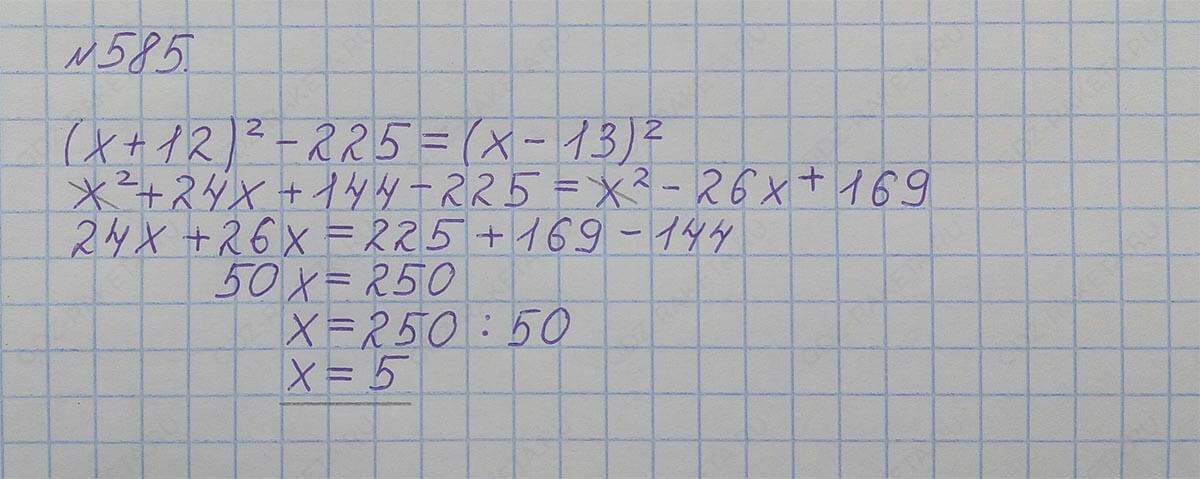 №585.
(x+12)²-225=(x-13)²
x²+24x+144-225=x²-26x+169
24x+26x=225+169-144
50x=250
x=250:50
x=5